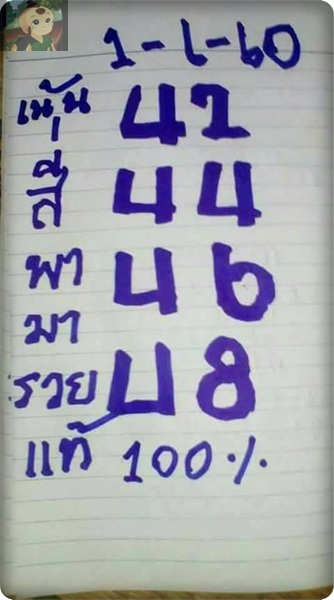 1-6-60
เน้น 42
สี่ 44
พา 46
มา
รวย 48
แท้ 100%